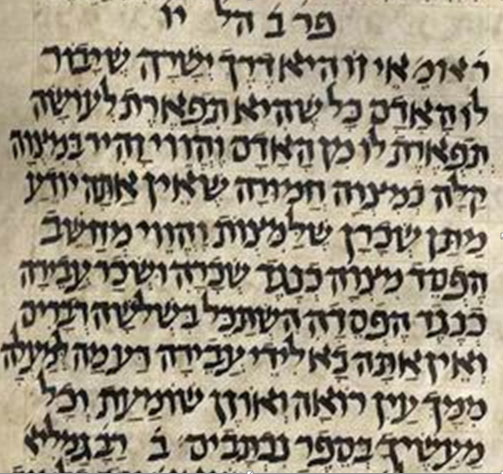 פר ב הל יו
ר אומ אי זו היא דרך ישרה שיבור
לו האדם כל שהיא תפארת לעושה
תפארת לו מן האדם והווי זהיר במצוה
קלה כמצוה חמורה שאין אתה יודע
מתן שכרן שלמצות והווי מחשב
הפסד מצוה כנגד שכרה ושכר עבירה
כנגד הפסדה השתכל בשלשה דברים
ואין אתה בא לידי עבירה דע מה למעלה
ממך עין רואה ואוזן שומעת וכל
מעשיך בספר נכתבים ב רבן גמליא